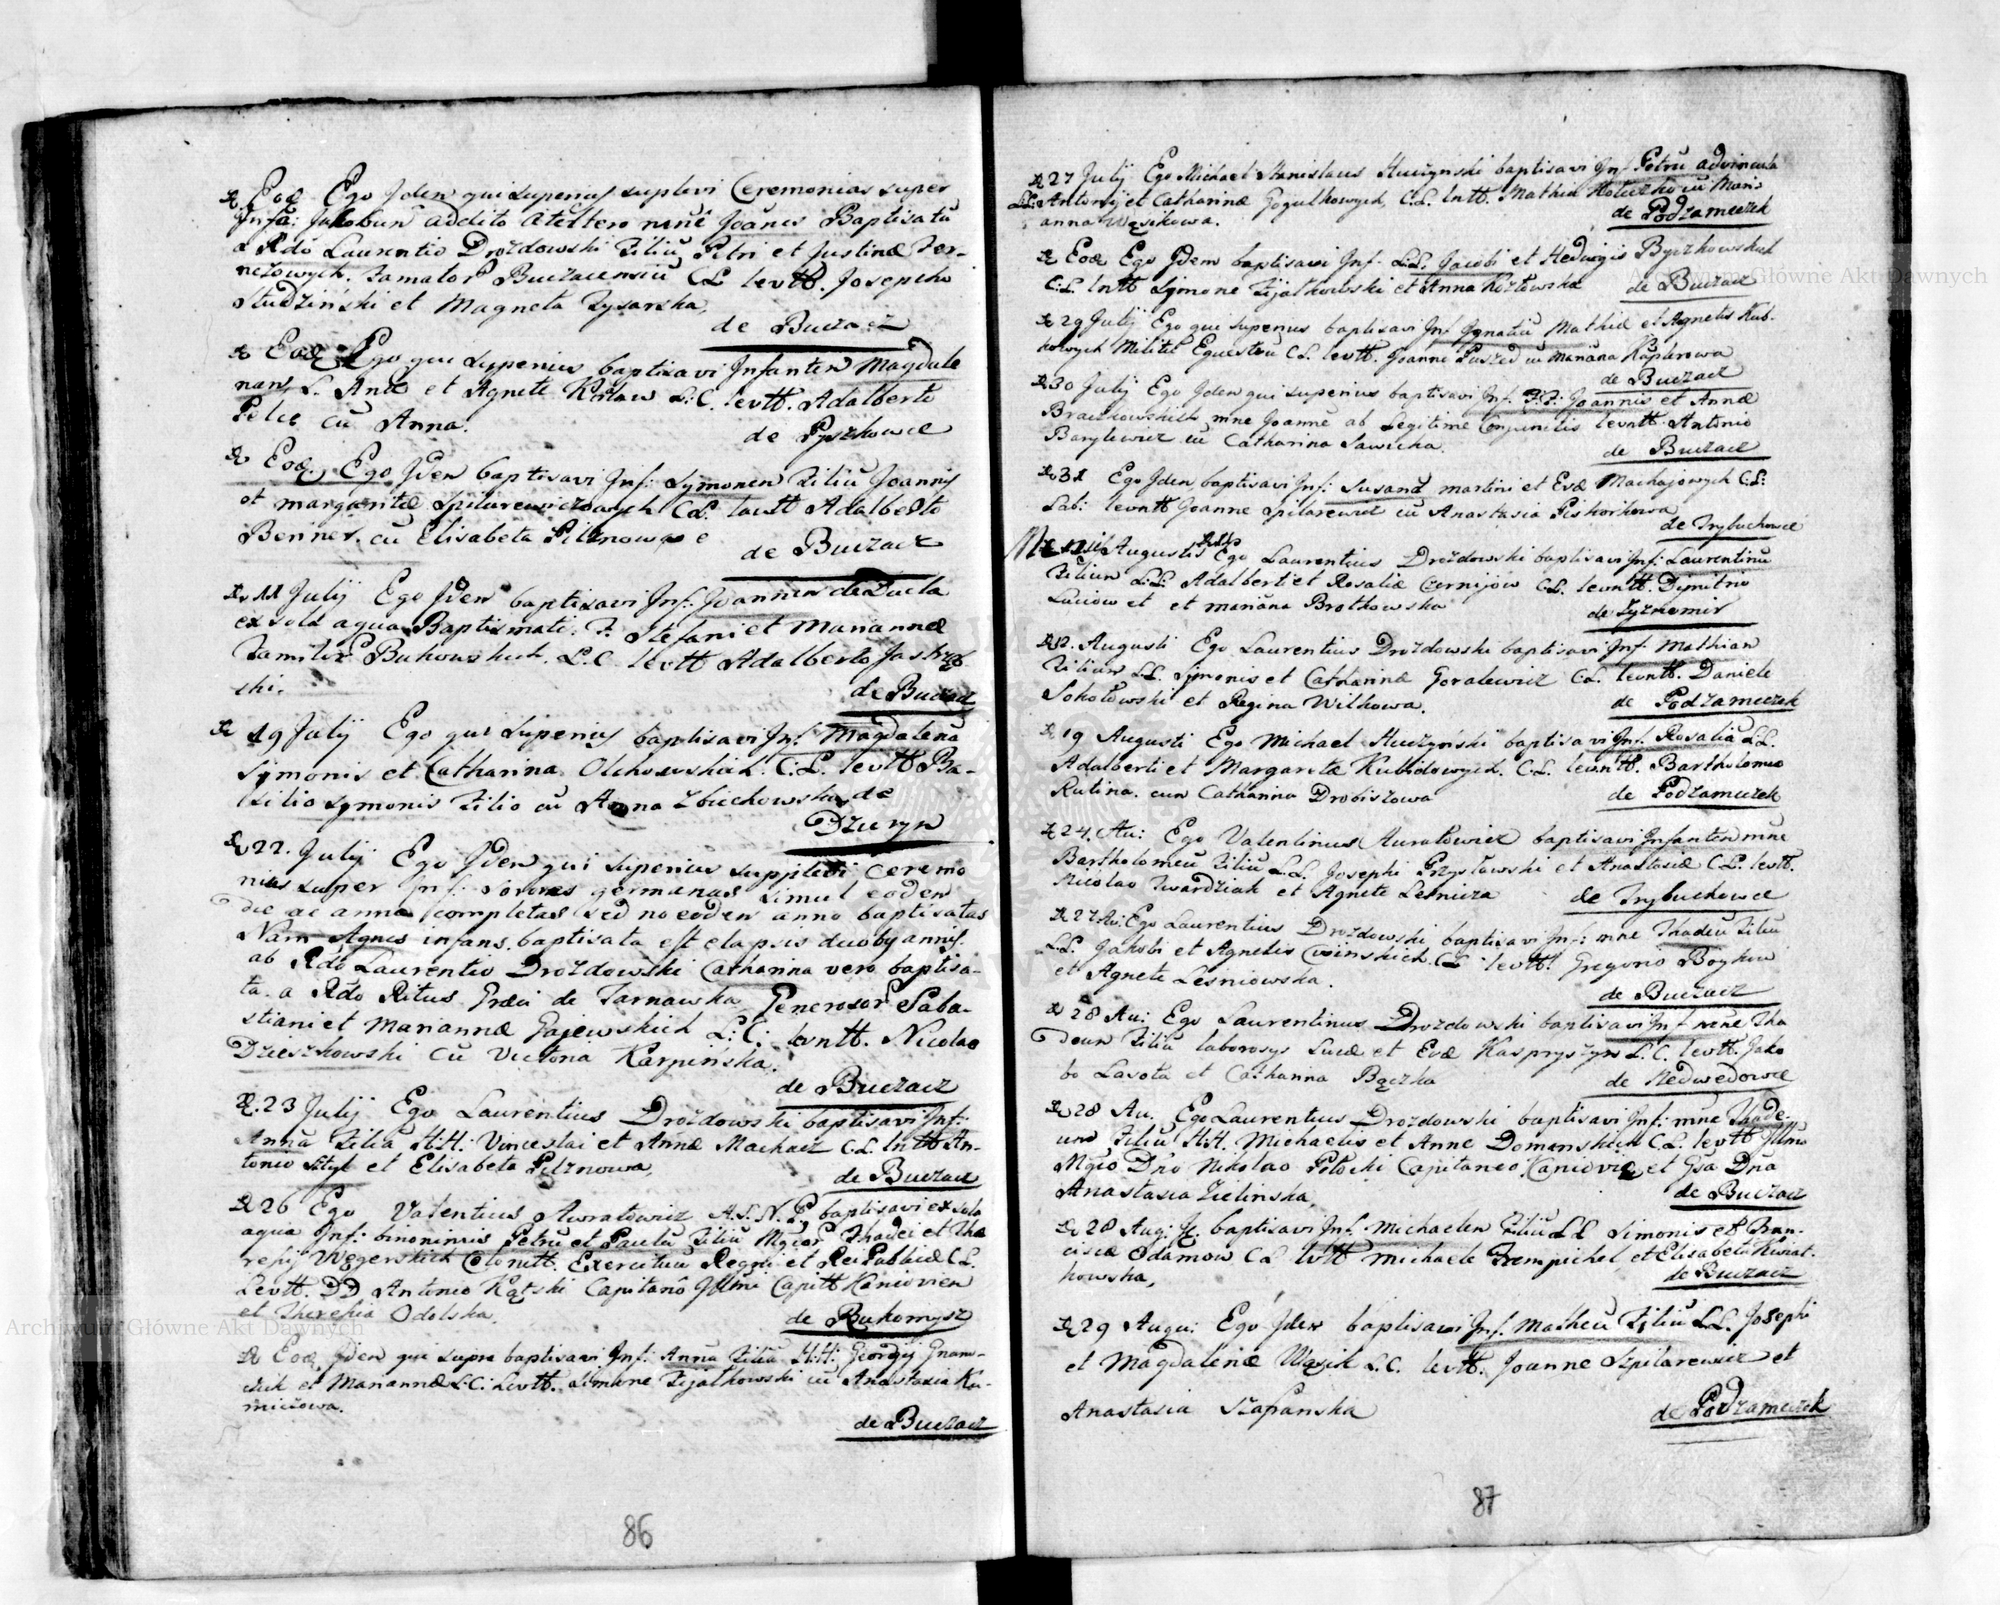 Eod. Ego Idem qui superius suplevi Ceremonias super
Infa: Jakobum addito altero nīne Joānes Baptisatū
a Rdo Laurentio Drozdowski Filiū Petri et Justinæ
Famator Buczacensiū C.L. levtt. Josepho
Studziński et Magneta Pysarska,
de Buczacz
Eod. Ego qui superius baptisavi Infantem Magdale
nam L. Ante et Agnete L:C. levtt. Adalberto
cū Anna.
de Pyszkowce
Eod. Ego Idem baptisavi Inf: Symonem Filiū Joannis
et margaritæ C.L. levtt Adalberto
Benner cū Elisabeta Pilznowa
de Buczacz
11 July Ego Idem baptisavi Inf: Joannem de Ducla
ex sola aqua Baptismati. F. Stefani et Mariannæ
Bukowskich. L.C. levtt Adalberto Jastrzęb
ski.
de Buczacz
19 July Ego qui superius baptisavi Inf. Magdalenā
Symonis et Catharina Olchowskich. C.L. levtt Ba-
silio Symonis Filio cū Anna Zbiechowska de
Dzuryn
22. July Ego Idem qui superius supplevi ceremo
nias super Inf: sorores germanas simul eodem
die ac anno completas sed no eodem anno baptisatas
Nam Agnes infans baptisata est elapsis duoby annis
ab Rdo Laurentio Drozdowski Catharina vero baptisa-
ta a Rdo Ritus Græci de Tarnawka Generosor Saba-
stiani et Mariannæ Gajewskich L:C: levntt. Nicolao
Dzieszkowski cū Victoria Karpińska.
de Buczacz
23 July Ego Laurentius Drozdowski baptisavi Inf:
Annā Filiā H.H. Vinceslai et Annæ Machacz C.L. lntt An-
tonio et Elisabeta Pilznowa,
de Buczacz
26 Ego Valentius Awratowicz A.S.N.P baptisavi ex sola
aqua Inf: binominus Petrū et Paulū Filiū Mgior Thadei et The
resij Węgerskich Colonett. Exercitus Regni et Rei Publicæ C.L.
Levtt. DD Antonio Kątski Capitano Illmi Capitt Kaniovien
et Theresia Odolska.
de Rukomysz
Eod. Idem qui supra baptisavi Inf: Anna Filiā H.H: Georgy Gnam-
et Mariannæ L:C: Levtt. Simone Fijalkowski cū Anastasia Ku-
miczowa.
de Buczacz
86
27 July Ego Michael Stanislaus Huczynski baptisavi Inf. Petrū advincula
L.L. Antonij et Catharinæ Gogulkowych, C.L. lntt. Mathia cū Mari-
anna Wąsikowa.
de Podzameczek
Eod. Ego Idem baptisavi Inf. L.L. Jacobi et Hedwigis Byczkowskich
C.L. lntt Symone Fijalkowski et Anna Kozłowska
de Buczacz
29 July Ego qui superius baptisavi Inf Ignatiū Mathiæ et Agnetis Kub-
kowych Militis C.L. levtt. Joanne cū mariana
de Buczacz
30 July Ego Idem qui superius baptisavi Inf. Joannis et Annæ
nīne Joanne ab Legitime Conjunctis levntt. Antonio
Barylewicz cū Catharina Sawicka.
de Buczacz
31 Ego Idem baptisavi Inf: Susanā martini et Evæ Machajowych C.L:
Lab: levntt Joanne Spilarewicz cū Anastasia Piskorkowa
de Trybuchowce
Augusti Ego Laurentius Drozdowski baptisavi Inf: Laurentinū
Filium L.L. Adalberti et Rosaliæ Czernijow C.L. levntt. Dymitrio
Luciow et et mariāna Brotkowska
de Zyznomir
12. Augusti Ego Laurentius Drozdowski baptisavi Inf. Mathiam
Filium L.L. Simonis et Catharinæ Goralewicz C.L. levntt. Daniele
Sokołowski et Regina Wilkowa.
de Podzameczek
19 Augusti Ego Michael Huczyński baptisavi Inf. Rosaliā L.L.
Adalberti et Margaretæ Kubidowych. C.L. levntt. Bartholomeo
Rutina. cum Catharina Drobiszowa
de Podzameczek
24. Au: Ego Valentinus Awratowicz baptisavi Infantem nīne
Bartholomeū Filiū L.L. Josephi Przysławski et Anastasiæ C.L. levtt.
Nicolao Twardziak et Agnete Lesnicza
de Trybuchowce
27 Au: Ego Laurentius Drozdowski baptisavi Inf: nīne Thadeū Filiū
L.L. Jakobi et Agnetis C.L. levtt. Gregorio
et Agnete Lesniowska.
de Buczacz
28 Au: Ego Laurentinus Drozdowski baptisavi Inf nīne Tha
deum Filiū laborosys Lucæ et Evæ Kaspryszyn L.C. levtt. Jako
bo Lasota et Catharina Bączka
de Medwedowce
28 Au. Ego Laurentius Drozdowski baptisavi Inf: nīne Thade-
um Filiū H.H. Michaelis et Anne Domanskich C.L. levtt Illmo
Mgīo Dño Nikolao Potocki Capitaneo Caniovię et Gsa Dña
Anastasia Zielinska
de Buczacz
28 Aug: Je. baptisavi Inf. Michaelem Filiū L.L Simonis et Fran-
ciscæ Odamow C.L. lvtt Michaele Trempichel et Elisabeta Kwiat-
kowska,
de Buczacz
29 Augu: Ego Idem baptisavi Inf. Matheū Filiū L.L. Josephi
et Magdalenæ Wąsik L.C. levtt. Joanne Szpilarewicz et
Anastasia Szafanska
de Podzameczek
87
Archiwum Główne Akt Dawnych
Archiwum Główne Akt Dawnych